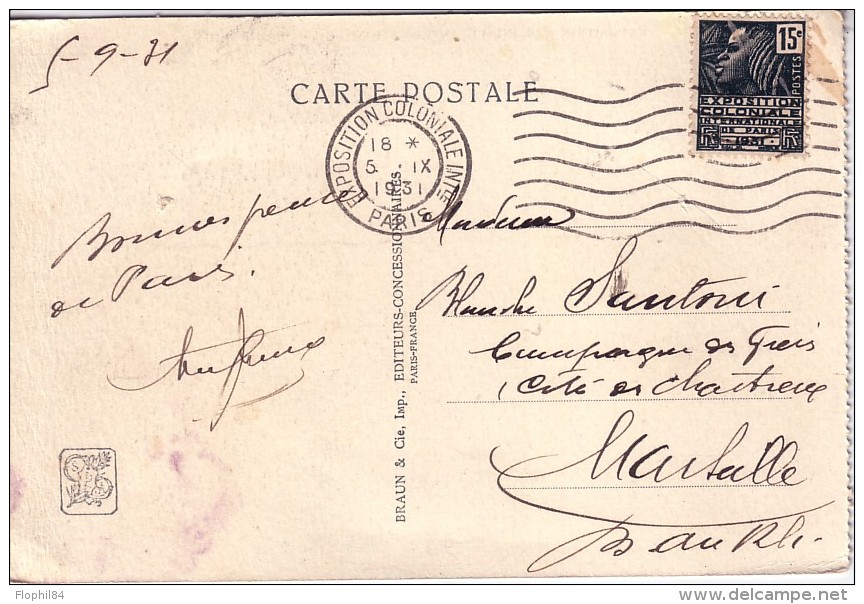 5-9-31
CARTE POSTALE
15c
POSTES
EXPOSITION
COLONIALE
INTERNATIONALE
DE PARIS
1931
EXPOSITION COLONIALE INTle
18 *
5 IX
1931
PARIS
Bonnes pensées
de Paris.
BRAUN & Cie, Imp., EDITEURS-CONCESSIONNAIRES.
PARIS-FRANCE
Madame
Blanche Santoni
Compagnie du
Cité des Chartreux
Marseille
B. du Rh.
Flophil84
delcampe.net